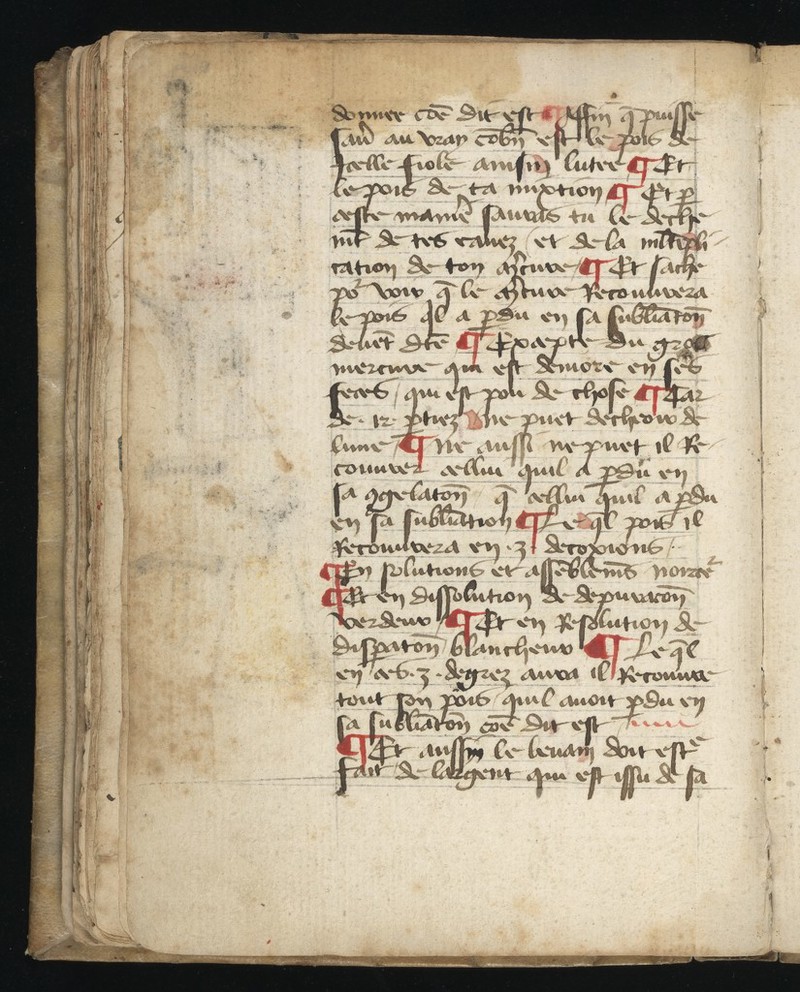 donnee cōe dit est ¶ Affin q̄ puisse
sauͬ au vray cōbn̄ est le pois de
Icelle fiole ainsin lutee ¶ Et
le pois de ta mixtion ¶ Et p̄
ceste manieͬ sauras tu le deche
mēt de tes eauez / et de la ml̄tipli-
cation de ton mͬcure / ¶ Et sache
poͬ voir q̄ le mͬcure Recouurera
le pois ql̄ a p̄du en sa subliāton̄
deuēt dc̄te ¶ Excepte du gros
mercure qui est demore en ses
feces / qui est pou de chose ¶ Car
de .12. p̄tiez ne puet decheoir de
lune / ¶ Ne aussi ne puet il Re-
couurer cellui quil a p̄du en
sa ꝯgelaton̄ / q̄ cellui quil a p̄du
en sa subliātion ¶ Le ql̄ pois il
Recouurera en .3. decoxions /.
¶ En solutions et assēblemēs noirteͬ
¶ Et en dissolution de depuraton̄
verdeur / ¶ Et en Resolution de
disparaton̄ blancheur ¶ Le ql̄
en ces .3. degrez aura il Recouure
tout son pois / quil auoit p̄du en
sa subliāton̄ cōe dit est
¶ Et aussin le leuain doit estͤ
fait de largent qui est issu de sa